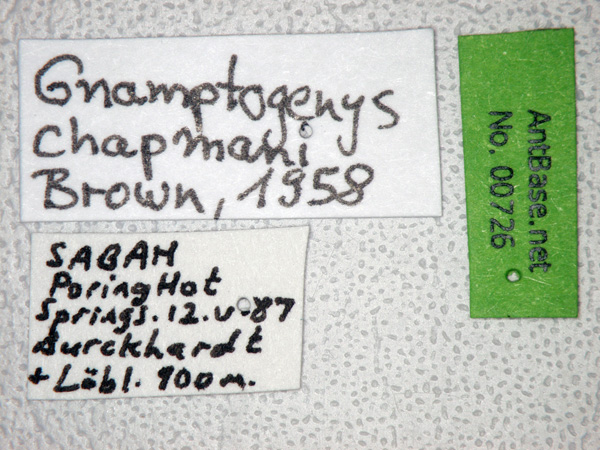 Gnamptogenys
chapmani
Brown, 1958
SABAH
Poring Hot
Springs. 12.v-87
Burckhardt
+ Löbl. 900m.
AntBase.net
No. 00726